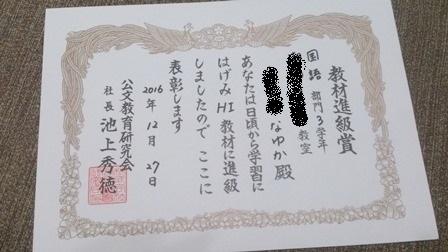 教材進級賞
国語 部門 3学年
教室
なゆか 殿
あなたは日頃から学習に
はげみ HI 教材に進級
しましたので ここに
表彰します
2016年 12月 27日
公文教育研究会
社長 池上秀徳